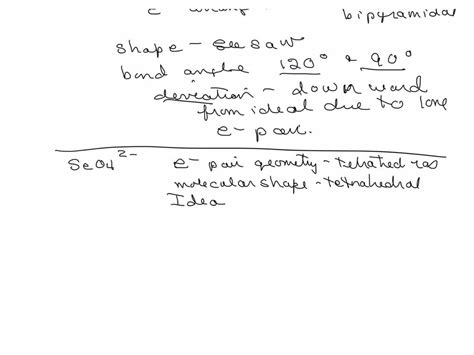 bipyramidal
shape - see saw
bond angle 120° & 90°
deviation - down ward
from ideal due to lone
e- pair.
SeO4 2- e- pair geometry - tetrahedral
molecular shape - tetrahedral
Idea